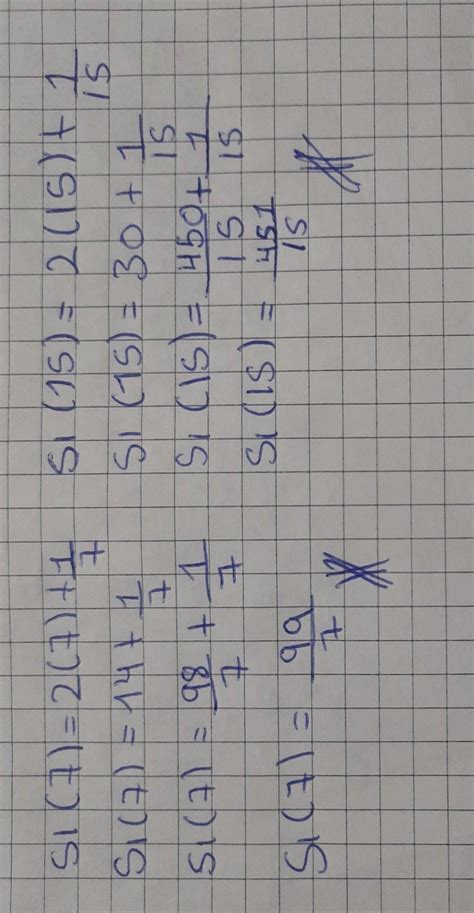 S1(7) = 2(7) + 1/7
S1(7) = 14 + 1/7
S1(7) = 98/7 + 1/7
S1(7) = 99/7
S1(15) = 2(15) + 1/15
S1(15) = 30 + 1/15
S1(15) = 450/15 + 1/15
S1(15) = 451/15